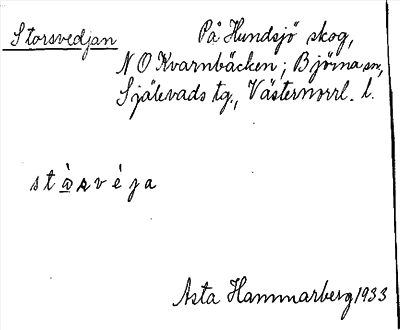 Storsvedjan
På Hundsjö skog,
N O Kvarnbäcken; Björna sn,
Själevads tg., Västernorrl. l.
Asta Hammarberg 1933